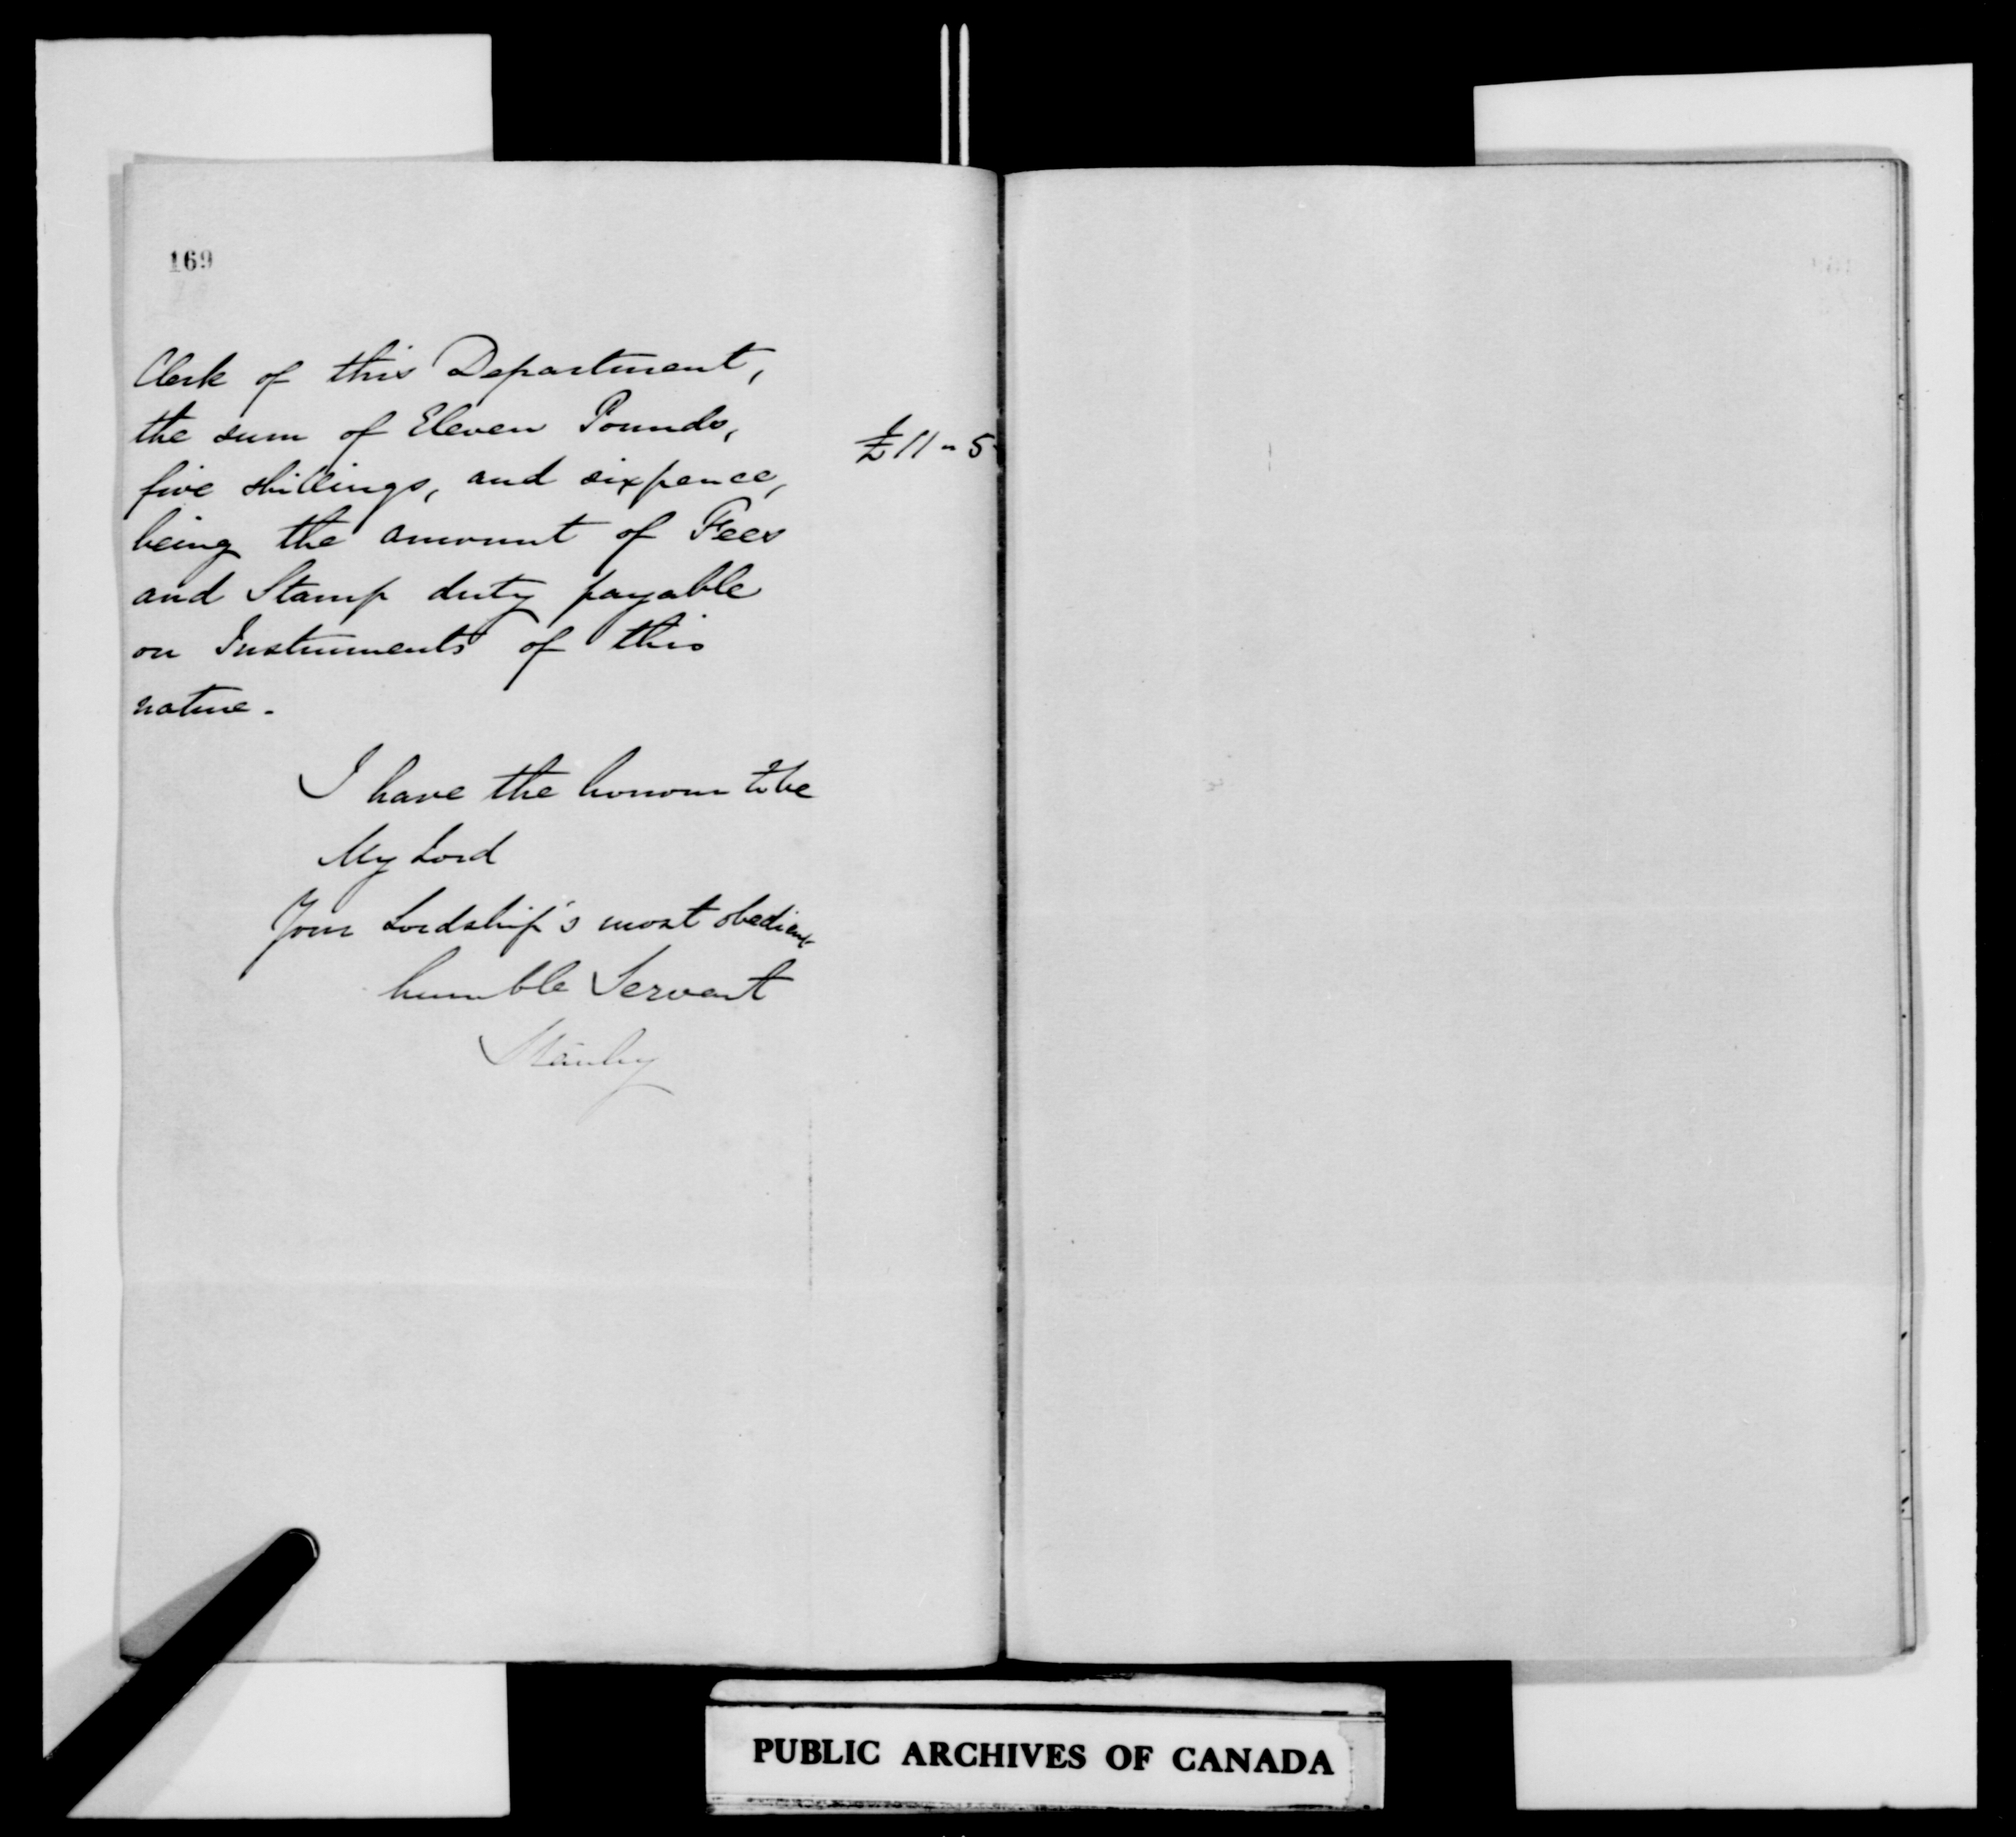 169
Clerk of this Department,
the sum of Eleven Pounds,
£11 " 5
five shillings, and sixpence,
being the amount of Fees
and Stamp duty payable
on Instruments of this
nature.
I have the honour to be
My Lord
Your Lordship's most obedient
humble Servant
Stanley
PUBLIC ARCHIVES OF CANADA